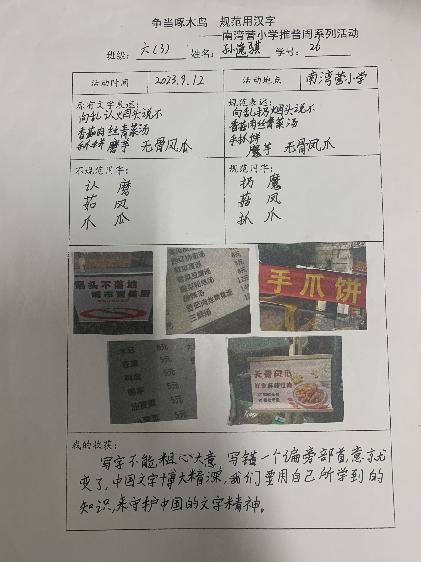 争当啄木鸟 规范用汉字
——南湾营小学推普周系列活动
班级: 六(3) 姓名: 孙滝骐 学号: 26
活动时间 2023.9.12 活动地点 南湾营小学
原有文字表达:
向乱认烟头说不
香茹肉丝青菜汤
手抓饼 磨芋 无骨风瓜
规范表达:
向乱扔烟头说不
香菇肉丝青菜汤
手抓饼
魔芋 无骨凤爪
不规范用字:
认 磨
茹 风
爪 瓜
规范用字:
扔 魔
菇 凤
抓 爪
烟头不落地
手爪饼
5元
5元
5元
5元
无骨风瓜
我的收获:
写字不能粗心大意,写错一个偏旁部首,意就
变了,中国文字博大精深,我们要用自己所学到的
知识,来守护中国的文字精神。